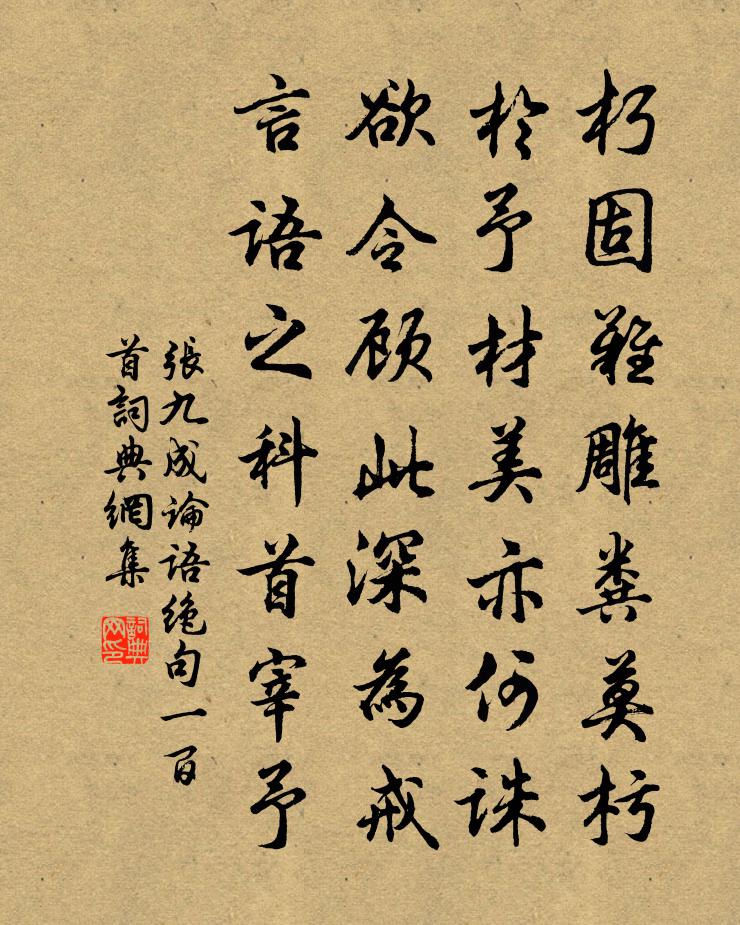 朽固難雕糞莫杇
於予材美亦何誅
欲令顾此深為戒
言語之科首宰予
張九成論语绝句一百
首詞典網集
詞典網印